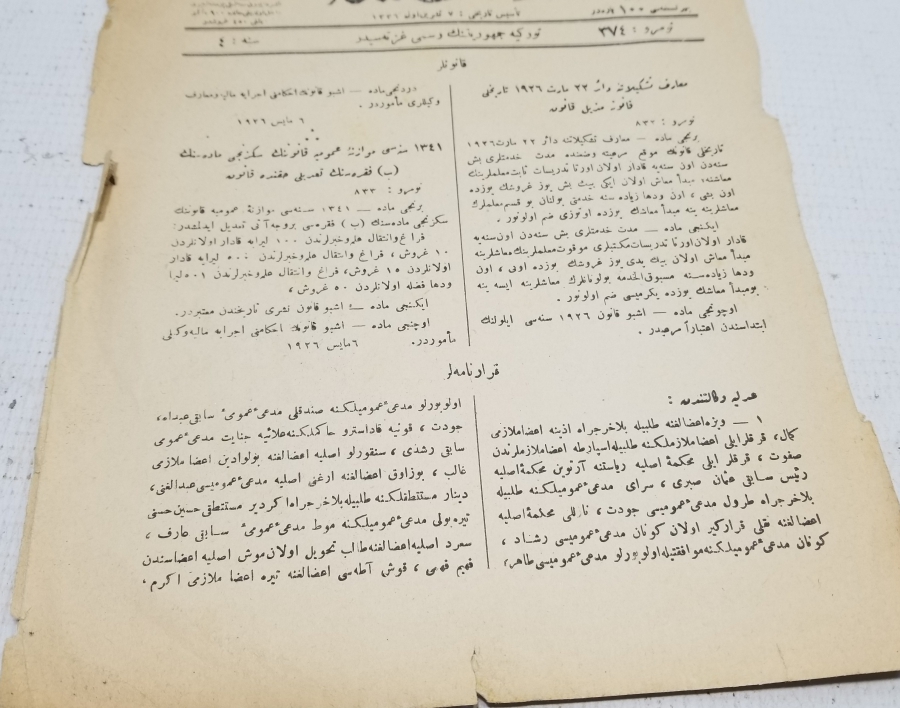 تأسیس تاریخی : ٧ تشرین اول ١٣٣٦
نومرو : ٣٧٤
تورکیه جمهوریتنك رسمی غزته‌سیدر
سنه : ٤
قانونلر
معارف تشکیلاتنه دائر ٢٢ مارت ١٩٢٦ تاریخلی
قانونه مذیل قانون
نومرو : ٨٣٢
برنجی ماده — معارف تشکیلاتنه دائر ٢٢ مارت ١٩٢٦
تاریخلی قانونك موقع مرعیته وضعنده مدت خدمتلری بش
سنه‌دن اون سنه‌یه قادار اولان اورتا تدریسات ثابت معلملرینك
معاشنه، مبدأ معاش اولان ایکی بیك بش یوز غروشك یوزده
اون بشی ، اون ودها زیاده سنه خدمتی بولنان بو قسم معلملرك
معاشلرینه ینه مبدأ معاشك یوزده اوتوزی ضم اولونور .
ایکنجی ماده — مدت خدمتلری بش سنه‌دن اون سنه‌یه
قادار اولان اورتا تدریسات مکتبلری موقوت معلملرینك معاشلرینه
مبدأ معاش اولان بیك یدی یوز غروشك یوزده اونی ، اون
ودها زیاده سنه مسبوق الخدمه بولونانلرك معاشلرینه ایسه ینه
بو مبدأ معاشك یوزده یکرمیسی ضم اولونور .
اوچونجی ماده — اشبو قانون ١٩٢٦ سنه‌سی ایلولنك
ابتداسندن اعتباراً مرعیدر .
دردنجی ماده — اشبو قانونك احکامنی اجرایه مالیه ومعارف
وکیللری مأموردر .
٦ مایس ١٩٢٦
١٣٤١ سنه‌سی موازنهٔ عمومیه قانوننك سکزنجی ماده‌سنك
(ب) فقره‌سنك تعدیلی حقنده قانون
نومرو : ٨٣٣
برنجی ماده — ١٣٤١ سنه‌سی موازنهٔ عمومیه قانوننك
سکزنجی ماده‌سنك (ب) فقره‌سی بروجه آتی تعدیل ایدلمشدر:
فراغ وانتقال علم وخبرلرندن ١٠٠ لیرایه قادار اولانلردن
١٠ غروش ، فراغ وانتقال علم وخبرلرندن ٥٠٠ لیرایه قادار
اولانلردن ١٥ غروش، فراغ وانتقال علم وخبرلرندن ٥٠١ لیرا
ودها فضله اولانلردن ٥٠ غروش ،
ایکنجی ماده — اشبو قانون نشری تاریخندن معتبردر.
اوچنجی ماده — اشبو قانونك احکامنی اجرایه مالیه وکیلی
مأموردر. ٦ مایس ١٩٢٦
قرارنامه‌لر
عدلیه وکالتندن :
١ — ویزه اعضالغنه طلبیله بلاخرجراه ادرنه اعضا ملازمی
کمال، قرقلرایلی اعضا ملازملکنه طلبیله اسپارطه اعضا ملازملرندن
صفوت ، قرقلر ایلی محکمهٔ اصلیه ریاستنه آرتوین محکمهٔ اصلیه
رئیس سابقی عثمان صبری ، سرای مدعیٔ عمومیلکنه طلبیله
بلاخرجراه طرول مدعیٔ عمومیسی جودت ، نازللی محکمهٔ اصلیه
اعضالغنه نقلی قرارکیر اولان کونان مدعیٔ عمومیسی رشاد ،
کونان مدعیٔ عمومیلکنه موافقتیله اولوبورلو مدعیٔ عمومیسی طاهر،
اولوبورلو مدعیٔ عمومیلکنه صندقلی مدعیٔ عمومیٔ سابقی عبدالله،
جودت ، قونیه قاداسترو حاکملکنه علائیه جنایت مدعیٔ عمومی
سابقی رشدی ، سنقورلو اصلیه اعضالغنه بولوادین اعضا ملازمی
غالب ، بوزاوق اعضالغنه ارغنی اصلیه مدعیٔ عمومیسی عبدالغنی،
دینار مستنطقلکنه طلبیله بلاخرجراه اکردیر مستنطقی حسین حسنی
تیره‌بولی مدعیٔ عمومیلکنه موط مدعیٔ عمومیٔ سابقی عارف ،
سعرد اصلیه اعضالغنه طالب تحویل اولان موش اصلیه اعضاسندن
فهیم فهمی ، قوش آطه‌سی اعضالغنه تیره اعضا ملازمی اکرم،